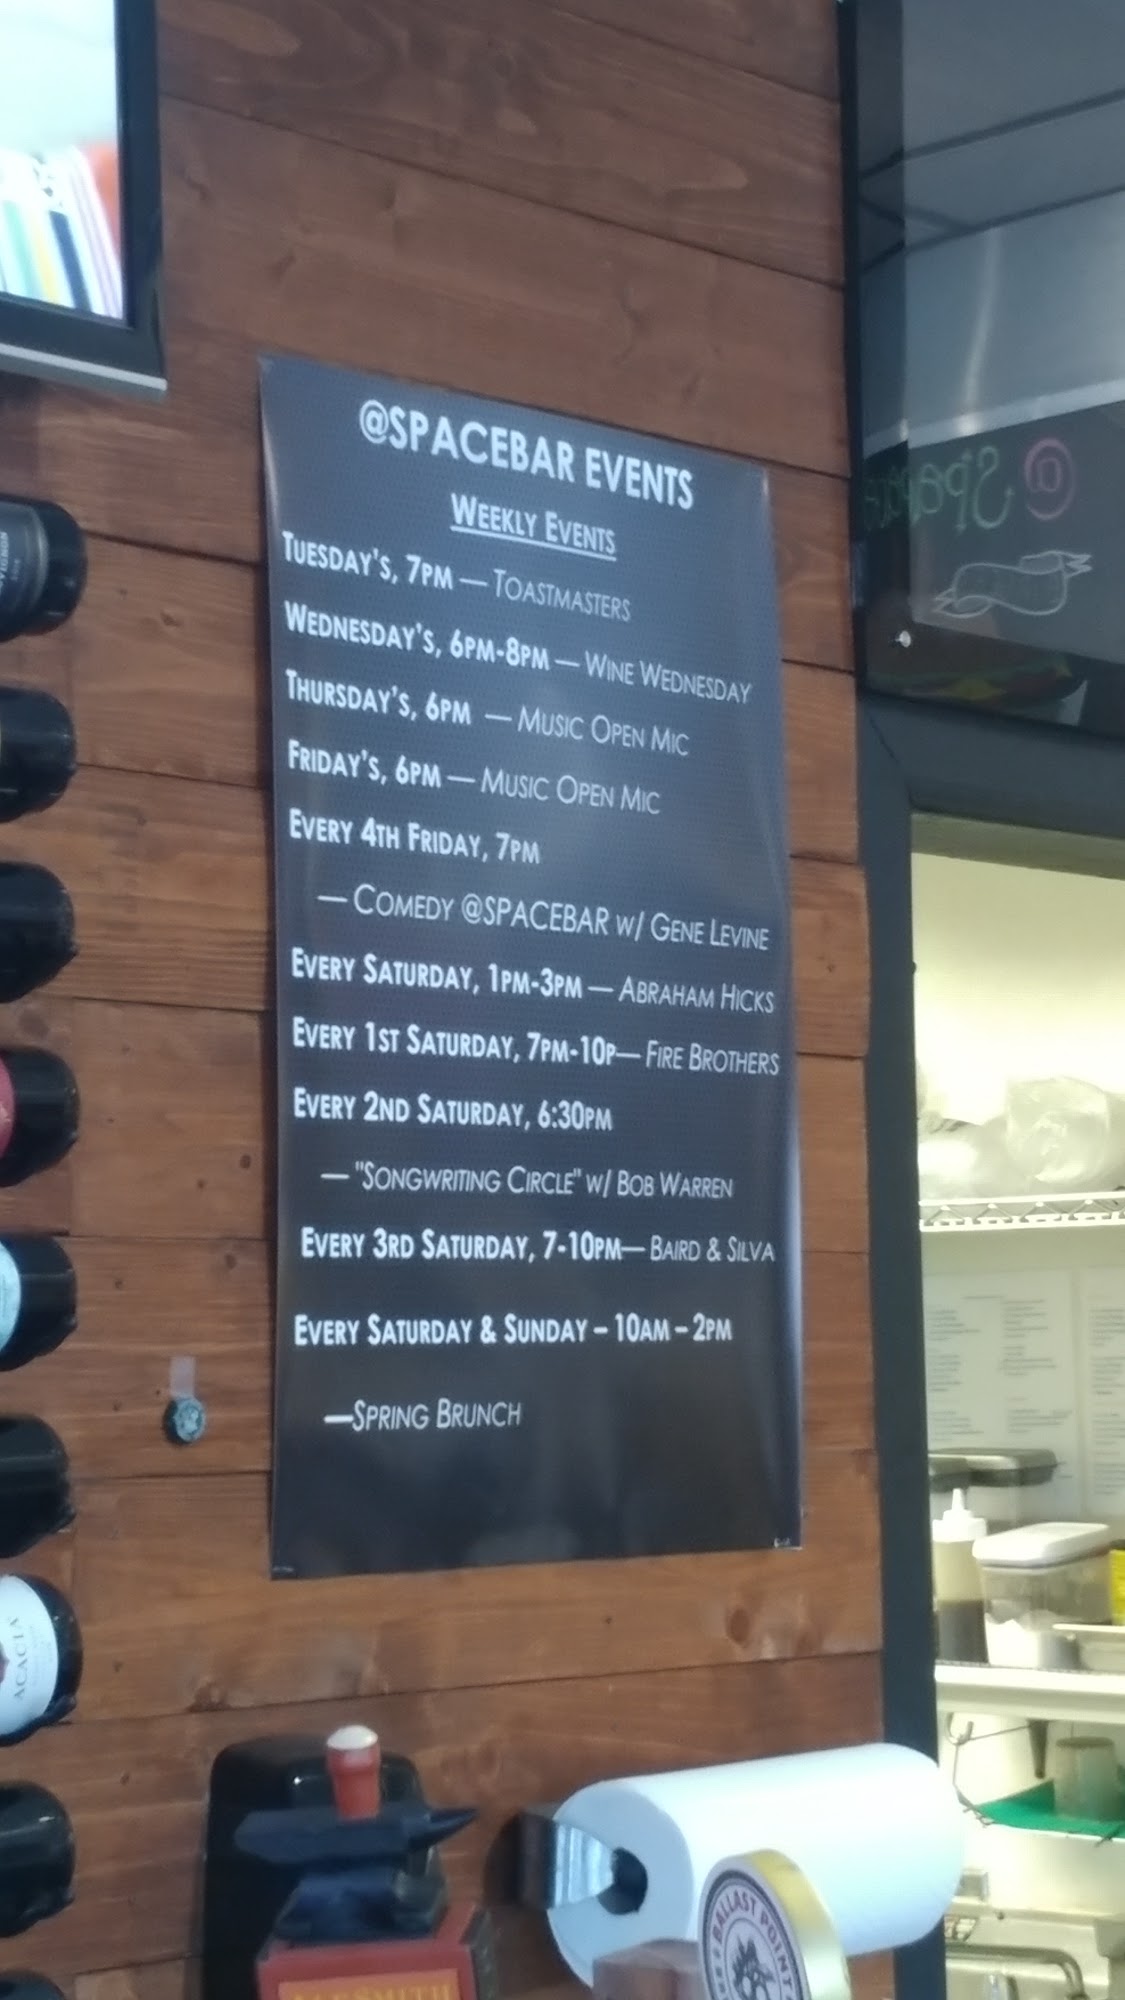 @SPACEBAR EVENTS
WEEKLY EVENTS
TUESDAY'S, 7PM — TOASTMASTERS
WEDNESDAY'S, 6PM-8PM — WINE WEDNESDAY
THURSDAY'S, 6PM — MUSIC OPEN MIC
FRIDAY'S, 6PM — MUSIC OPEN MIC
EVERY 4TH FRIDAY, 7PM
— COMEDY @SPACEBAR W/ GENE LEVINE
EVERY SATURDAY, 1PM-3PM — ABRAHAM HICKS
EVERY 1ST SATURDAY, 7PM-10P— FIRE BROTHERS
EVERY 2ND SATURDAY, 6:30PM
— "SONGWRITING CIRCLE" W/ BOB WARREN
EVERY 3RD SATURDAY, 7-10PM— BAIRD & SILVA
EVERY SATURDAY & SUNDAY – 10AM – 2PM
—SPRING BRUNCH
ACACIA
BALLAST POINT